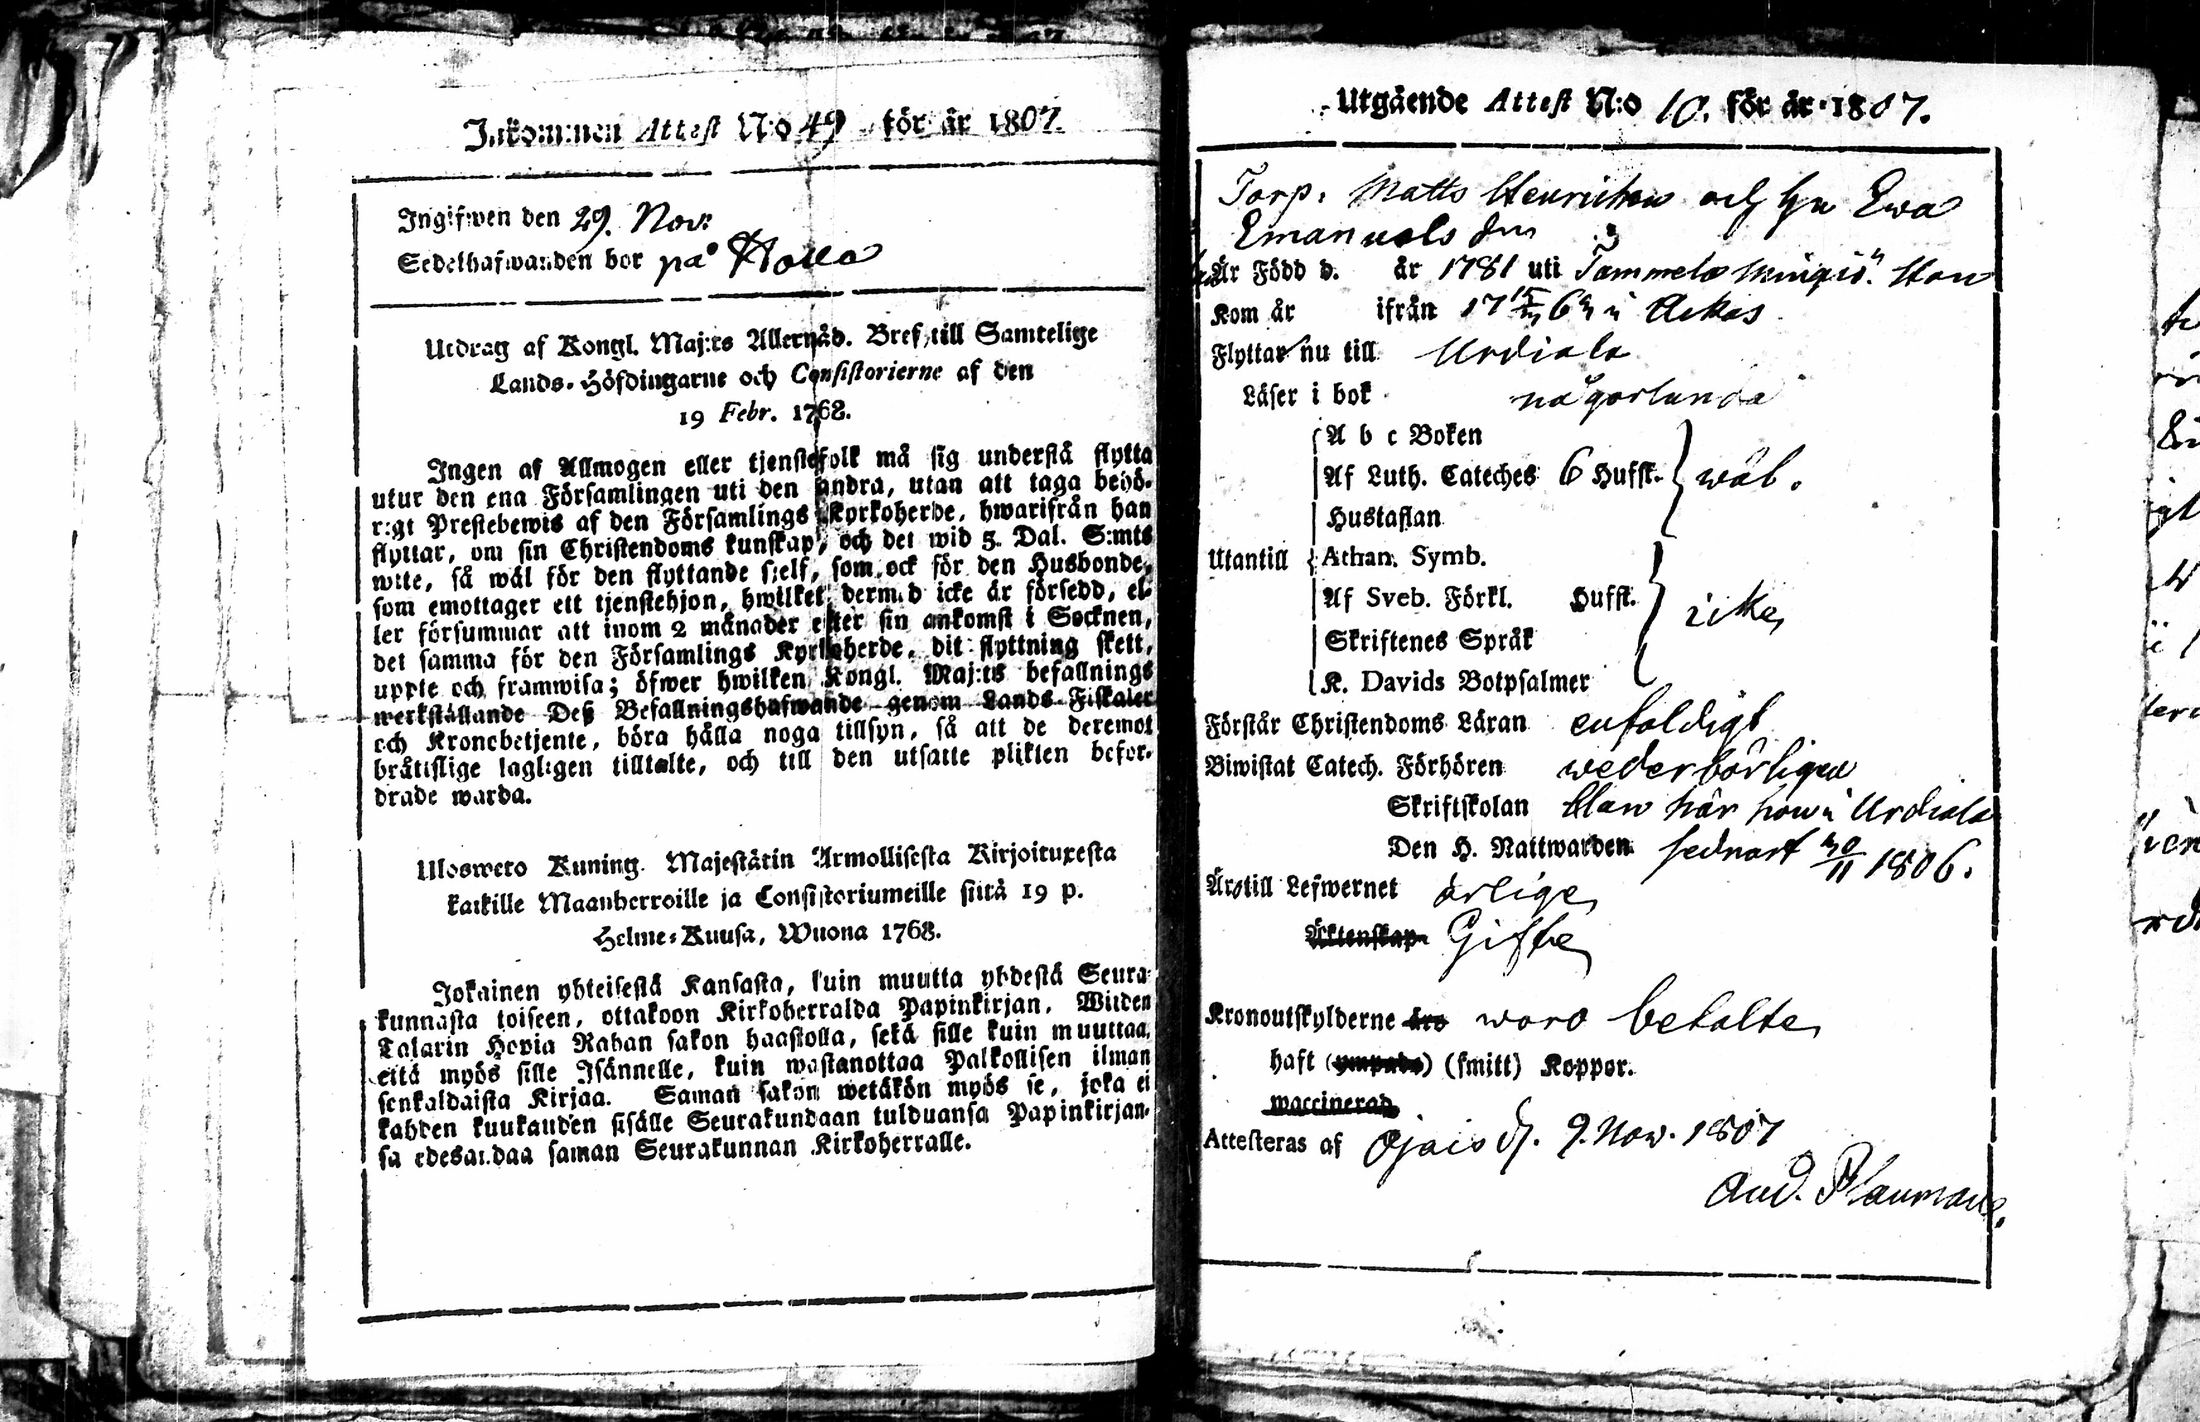 Inkommen Attest N:o 49 för år 1807.
Ingifwen den 29. Nov:
Sedelhafwanden bor på
Utdrag af Kongl. Maj:ts Allernåd. Bref till Samtelige
Lands-Höfdingarne och Consistorierne af den
19 Febr. 1768.
Ingen af Allmogen eller tjenstefolk må sig understå flytta
utur den ena Församlingen uti den andra, utan att taga behö-
rigt Prestebewis af den Församlings Kyrkoherde, hwarifrån han
flyttar, om sin Christendoms kunskap, och det wid 5. Dal. S:mts
wite, så wäl för den flyttande sjelf, som ock för den Husbonde,
som emottager ett tjenstehjon, hwilket dermed icke är försedd, el-
ler försummar att inom 2 månader efter sin ankomst i Socknen,
det samma för den Församlings Kyrkoherde, dit flyttning skett,
uppte och framwisa; öfwer hwilken Kongl. Maj:ts befallnings
werkställande Deß Befallningshafwande genom Lands-Fiskaler
och Kronobetjente, böra hålla noga tillsyn, så att de deremot
bråtislige lagligen tilltalte, och till den utsatte plikten befor-
drade warda.
Ulosweto Kuning. Majestätin Armollisesta Kirjoituxesta
kaikille Maanherroille ja Consistoriumeille siitä 19 p.
Helme-Kuusa, Wuona 1768.
Jokainen yhteisestä Kansasta, kuin muutta yhdestä Seura-
kunnasta toiseen, ottakoon Kirkoherralda Papinkirjan, Wiiden
Talarin Hopia Rahan sakon haastolla, sekä sille kuin muuttaa,
että myös sille Isännelle, kuin wastanottaa Palkollisen ilman
senkaldaista Kirjaa. Saman sakon wetäkön myös se, joka ei
kahden kuukauden sisälle Seurakundaan tulduansa Papinkirjan-
sa edesandaa saman Seurakunnan Kirkoherralle.
Utgående Attest N:o 10. för år 1807.
Torp. Matts Henrichson och Hu Ewa
Emanuels dr
Är Född d. år 1781 uti Tammela Hon
Kom år ifrån 17 i Ackas
Flyttar nu till Urdiala
Läser i bok någorlunda
A b c Boken
Af Luth. Cateches 6 Hufst. wäl.
Hustaflan
Utantill Athan. Symb.
Af Sveb. Förkl. Hufst. icke
Skriftenes Språk
K. Davids Botpsalmer
Förstår Christendoms Läran enfaldigt
Biwistat Catech. Förhören wederbörligen
Skriftskolan Han här hon i Urdiala
Den H. Nattwarden sednast 30/11 1806.
Är till Lefwernet ärlige
Äktenskap Gifte
Kronoutskylderne äro woro betalte
haft (ympade) (smitt) Koppor.
waccinerad
Attesteras af Ojais d. 9. Now. 1807
And. Plauman.